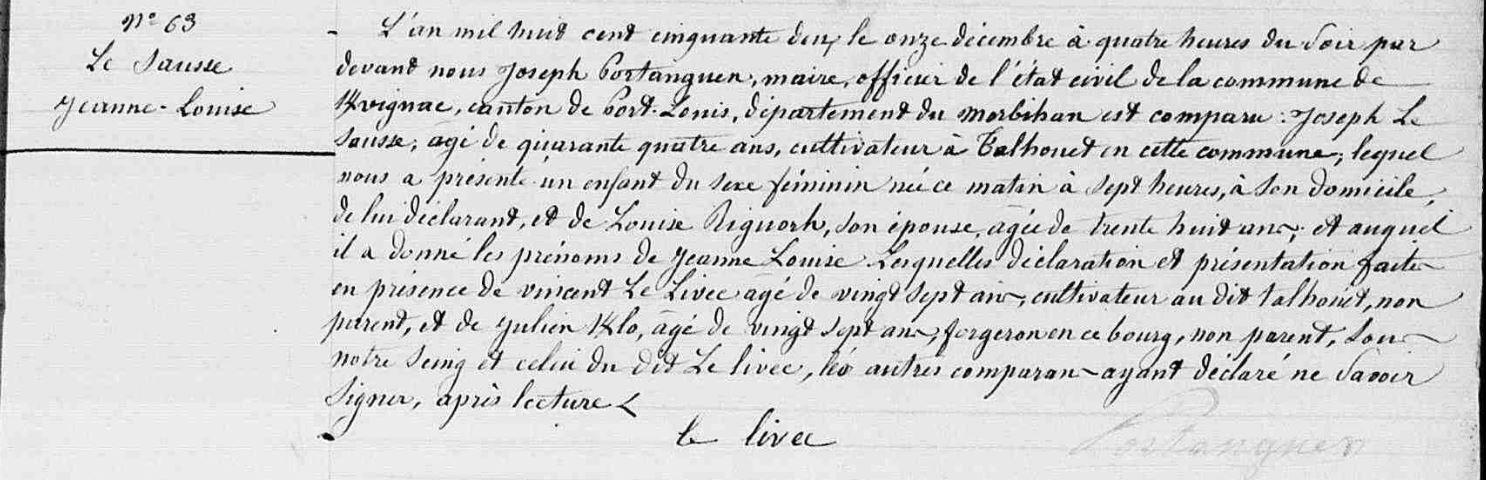 N° 63
Le Sausse
Jeanne-Louise
L'an mil huit cent cinquante deux, le onze décembre à quatre heures du soir par
devant nous Joseph Portanguen, maire, officier de l'état civil de la commune de
Kvignac, canton de Port-Louis, département du Morbihan est comparu : Joseph Le
Sausse, âgé de quarante quatre ans, cultivateur à Talhouet en cette commune, lequel
nous a présenté un enfant du sexe féminin née ce matin à sept heures, à son domicile,
de lui déclarant, et de Louise Riguorh, son épouse, agée de trente huit ans, et auquel
il a donné les prénoms de Jeanne Louise Lesquelles déclaration et présentation faites
en présence de vincent Le Livec agé de vingt sept ans, cultivateur au dit talhouët, non
parent, et de Julien Klo, âgé de vingt sept ans, forgeron en ce bourg, non parent, sous
notre seing et celui du dit Le livec, les autres comparans ayant déclaré ne savoir
signer, après lecture
le livec
Portanguen